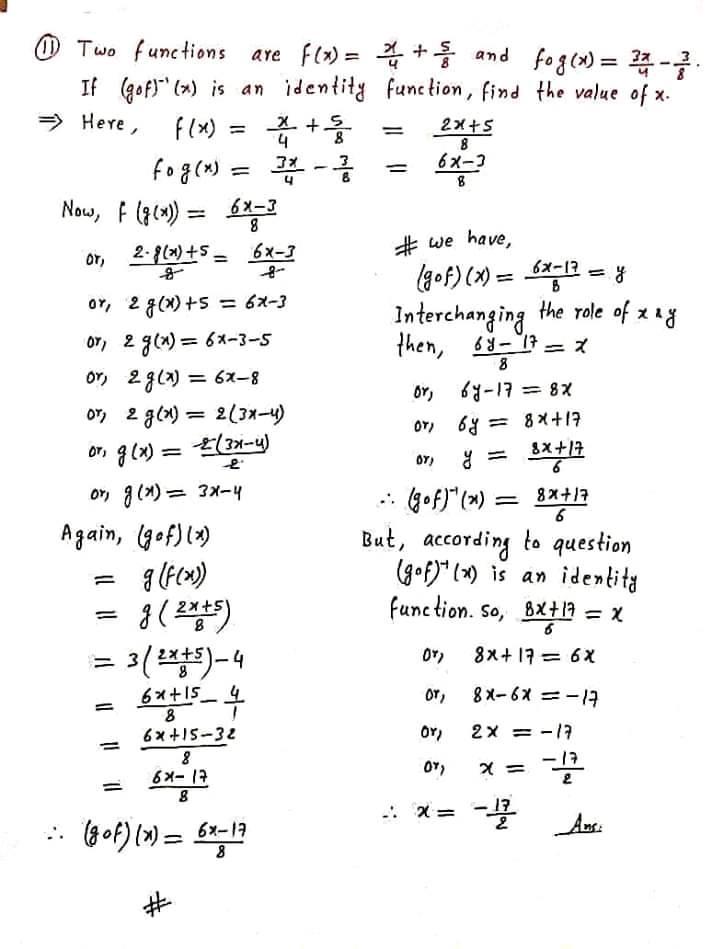 ⑪ Two functions are f(x) = x/4 + 5/8 and fog(x) = 3x/4 - 3/8.
If (gof)⁻¹(x) is an identity function, find the value of x.
⇒ Here, f(x) = x/4 + 5/8 = 2x+5/8
fog(x) = 3x/4 - 3/8 = 6x-3/8
Now, f(g(x)) = 6x-3/8
or, 2·g(x)+5/8 = 6x-3/8
or, 2g(x)+5 = 6x-3
or, 2g(x) = 6x-3-5
or, 2g(x) = 6x-8
or, 2g(x) = 2(3x-4)
or, g(x) = 2(3x-4)/2
or, g(x) = 3x-4
Again, (gof)(x)
= g(f(x))
= g(2x+5/8)
= 3(2x+5/8)-4
= 6x+15/8 - 4/1
= 6x+15-32/8
= 6x-17/8
∴ (gof)(x) = 6x-17/8
#
# we have,
(gof)(x) = 6x-17/8 = y
Interchanging the role of x & y
then, 6y-17/8 = x
or, 6y-17 = 8x
or, 6y = 8x+17
or, y = 8x+17/6
∴ (gof)⁻¹(x) = 8x+17/6
But, according to question
(gof)⁻¹(x) is an identity
function. So, 8x+17/6 = x
or, 8x+17 = 6x
or, 8x-6x = -17
or, 2x = -17
or, x = -17/2
∴ x = -17/2 Ans.